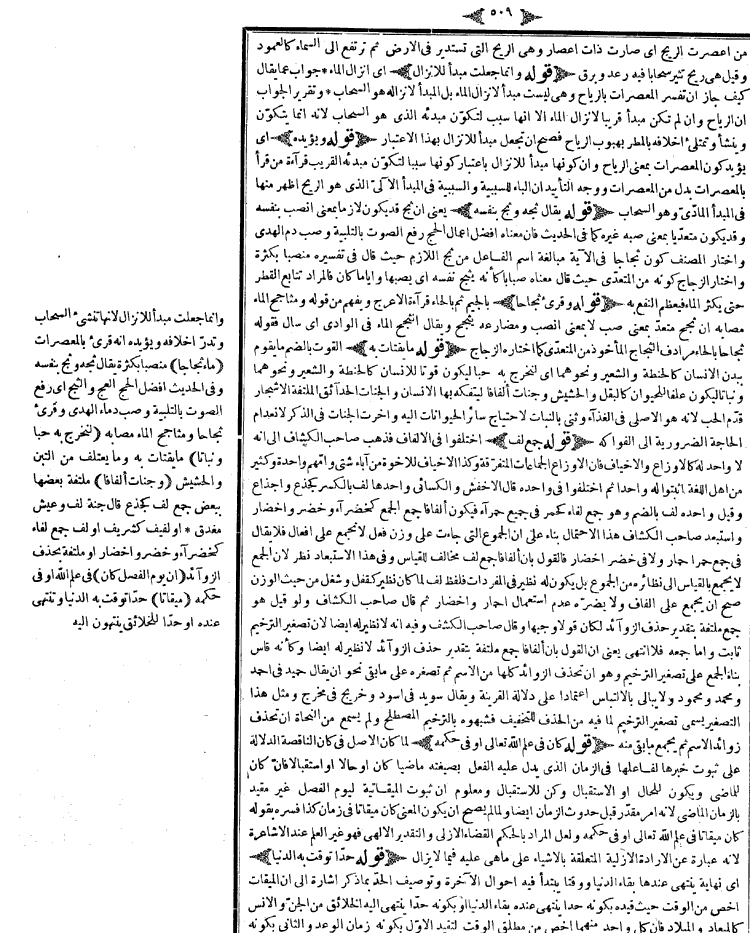 ٥٠٩
من اعصرت الريح اى صارت ذات اعصار وهى الريح التى تستدير فى الارض ثم ترتفع الى السماء كالعمود
وقيل هى ريح تثير سحابا فيه رعد وبرق ﴿ قوله وانما جعلت مبدأ للانزال ﴾ اى انزال الماء * جواب عما يقال
كيف جاز ان تفسر المعصرات بالرياح وهى ليست مبدأ لانزال الماء بل المبدأ لانزاله هو السحاب * وتقرير الجواب
ان الرياح وان لم تكن مبدأ قريبا لانزال الماء الا انها سبب لتكون مبدئه الذى هو السحاب لانه انما يتكون
وينشأ وتمتلئ اخلافه بالمطر بهبوب الرياح فصح ان تجعل مبدأ للانزال بهذا الاعتبار ﴿ قوله ويؤيده ﴾ اى
يؤيد كون المعصرات بمعنى الرياح وان كونها مبدأ للانزال باعتبار كونها سببا لتكون مبدئه القريب قرآءة من قرأ
بالمعصرات بدل من المعصرات ووجه التأييد ان الباء للسببية والسببية فى المبدأ الآلى الذى هو الريح اظهر منها
فى المبدأ المادّى وهو السحاب ﴿ قوله يقال ثجه وثج بنفسه ﴾ يعنى ان ثج قد يكون لازما بمعنى انصب بنفسه
وقد يكون متعديا بمعنى صبه غيره كما فى الحديث فان معناه افضل اعمال الحج رفع الصوت بالتلبية وصب دم الهدى
واختار المصنف كون ثجاجا فى الآية مبالغة اسم الفاعل من ثج اللازم حيث قال فى تفسيره منصبا بكثرة
واختار الزجاج كونه من المتعدى حيث قال معناه صبابا كأنه يثج نفسه اى يصبها واياما كان فالمراد تتابع القطر
حتى يكثر الماء فيعظم النفع به ﴿ قوله وقرئ ثجاجا ﴾ بالجيم ثم بالحاء قرآءة الاعرج ويفهم من قوله ومثاجح الماء
مصابه ان ثجح متعد بمعنى صب لا بمعنى انصب ومضارعه يثجح ويقال اثجح الماء فى الوادى اى سال فقوله
ثجاجا بالحاء مرادف الثجاج المأخوذ من المتعدى كما اختاره الزجاج ﴿ قوله ما يقتات به ﴾ القوت بالضم ما يقوم
ببدن الانسان كالحنطة والشعير ونحوهما اى لنخرج به حبا ليكون قوتا للانسان كالحنطة والشعير ونحوهما
ونباتا ليكون علفا للحيوان كالبقل والحشيش وجنات ألفافا ليتفكه بها الانسان والجنات الحدآئق الملتفة الاشجار
قدم الحب لانه هو الاصلى فى الغذآء وثنى بالنبات لاحتياج سائر الحيوانات اليه واخرت الجنات فى الذكر لانعدام
الحاجة الضرورية الى الفواكه ﴿ قوله جمع لف ﴾ اختلفوا فى الالفاف فذهب صاحب الكشاف الى انه
لا واحد له كالاوزاع والاخياف فان الاوزاع الجماعات المتفرقة وكذا الاخياف للاخوة من آباء شتى وامهم واحدة وكثير
من اهل اللغة اثبتوا له واحدا ثم اختلفوا فى واحده قال الاخفش والكسائى واحدها لف بالكسر كجذع واجذاع
وقيل واحده لف بالضم وهو جمع لفاء كحمر فى جمع حمرآء فيكون ألفافا جمع الجمع كخضرآء وخضر واخضار
واستبعد صاحب الكشاف هذا الاحتمال بناء على ان الجموع التى جاءت على وزن فعل لا تجمع على افعال فلا يقال
فى جمع حمر احمار ولا فى خضر اخضار فالقول بان ألفافا جمع لف مخالف للقياس وفى هذا الاستبعاد نظر لان الجمع
لا يجمع بالقياس الى نظائره من الجموع بل يكون له نظير فى المفردات فلفظ لف لما كان نظير كقفل وشغل من حيث الوزن
صح ان يجمع على الفاف ولا يضره عدم استعمال احمار واخضار ثم قال صاحب الكشاف ولو قيل هو
جمع ملتفة بتقدير حذف الزوآئد لكان قولا وجيها وقال صاحب الكشف وفيه انه لا نظير له ايضا لان تصغير الترخيم
ثابت واما جمعه فلا انتهى يعنى ان القول بان ألفافا جمع ملتفة بتقدير حذف الزوآئد لا نظير له ايضا وكأنه قاس
بناء الجمع على تصغير الترخيم وهو ان تحذف الزوآئد كلها من الاسم ثم تصغره على ما بقى نحو ان يقال حميد فى احمد
ومحمد ومحمود ولا يبالى بالالتباس اعتمادا على دلالة القرينة ويقال سويد فى اسود وخريج فى مخرج ومثل هذا
التصغير يسمى تصغير الترخيم لما فيه من الحذف للتخفيف فشبهوه بالترخيم المصطلح ولم يسمع من النحاة ان تحذف
زوائد الاسم ثم يجمع ما بقى منه ﴿ قوله كان فى علم الله تعالى او فى حكمه ﴾ لما كان الاصل فى كان الناقصة الدلالة
على ثبوت خبرها لفاعلها فى الزمان الذى يدل عليه الفعل بصيغته ماضيا كان او حالا او استقبالا فان كان
للماضى ويكون للحال او الاستقبال وكن للاستقبال ومعلوم ان ثبوت الميقاتية ليوم الفصل غير مقيد
بالزمان الماضى لانه امر مقدر قبل حدوث الزمان ايضا ولما لم يصح ان يكون المعنى كان ميقاتا فى زمان كذا فسره بقوله
كان ميقاتا فى علم الله تعالى او فى حكمه ولعل المراد بالحكم القضاء الازلى والتقدير الالهى فهو غير العلم عند الاشاعرة
لانه عبارة عن الارادة الازلية المتعلقة بالاشياء على ماهى عليه فيما لا يزال ﴿ قوله حدا توقت به الدنيا ﴾
اى نهاية ينتهى عندها بقاء الدنيا ووقتا يبتدأ فيه احوال الآخرة وتوصيف الحد بما ذكر اشارة الى ان الميقات
اخص من الوقت حيث قيده بكونه حدا ينتهى عنده بقاء الدنيا او بكونه حدا ينتهى اليه الخلائق من الجن والانس
كالميعاد والميلاد فان كل واحد منهما اخص من مطلق الوقت لتقيد الاول بكونه زمان الوعد والثانى بكونه
وانما جعلت مبدأ للانزال لانها تنشئ السحاب
وتدرّ اخلافه ويؤيده انه قرئ بالمعصرات
(ماء ثجاجا) منصبا بكثرة يقال ثجه وثج بنفسه
وفى الحديث افضل الحج العج والثج اى رفع
الصوت بالتلبية وصب دماء الهدى وقرئ
ثجاحا ومثاجح الماء مصابه (لنخرج به حبا
ونباتا) ما يقتات به وما يعتلف من التبن
والحشيش (وجنات ألفافا) ملتفة بعضها
ببعض جمع لف كجذع قال جنة لف وعيش
مغدق * او لفيف كشريف او لف جمع لفاء
كخضرآء وخضر واخضار او ملتفة بحذف
الزوآئد (ان يوم الفصل كان) فى علم الله او فى
حكمه (ميقاتا) حدا توقت به الدنيا وتنتهى
عنده او حدا للخلائق ينتهون اليه